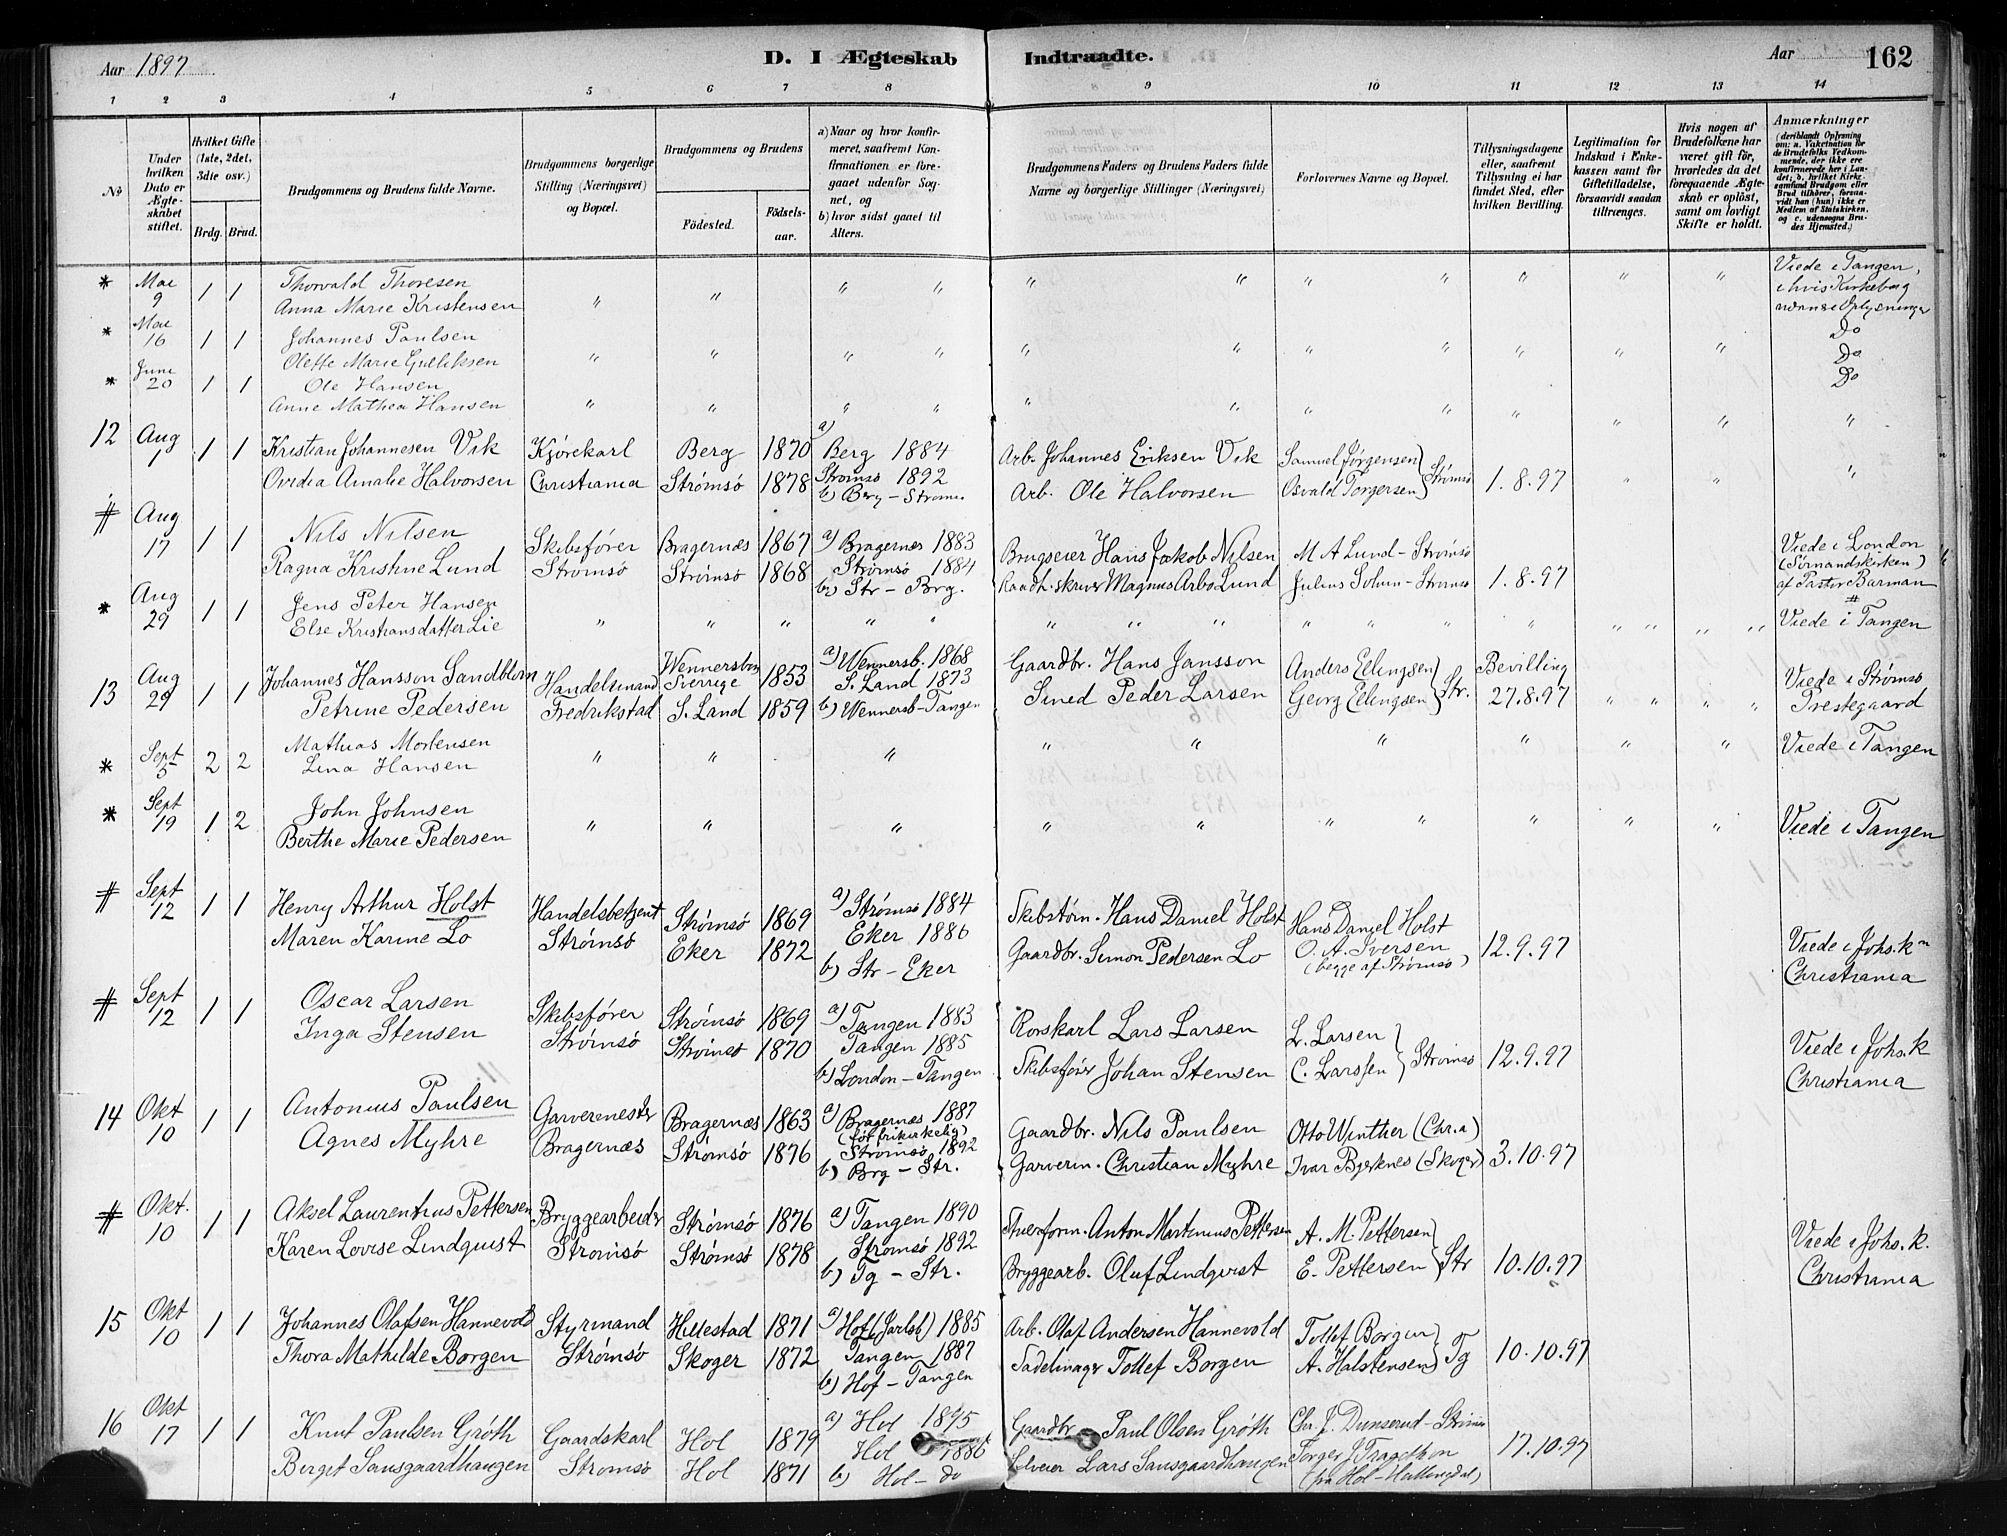 Aar 1897
D. I Ægteskab Indtraadte.
Aar 162
1 2 3 4 5 6 7 8 9 10 11 12 13 14
No
Under hvilken Dato er Ægteskabet stiftet.
Hvilket Gifte (1ste, 2det, 3die osv.)
Brdg. Brud.
Brudgommens og Brudens fulde Navne.
Brudgommens borgerlige Stilling (Næringsvei) og Bopæl.
Brudgommens og Brudens
Födested. Födselsaar.
a) Naar og hvor konfirmeret, saafremt Konfirmationen er foregaaet udenfor Sognet, og
b) hvor sidst gaaet til Alters.
Brudgommens Faders og Brudens Faders fulde Navne og borgerlige Stillinger (Næringsvei)
Forlovernes Navne og Bopæl.
Tillysningsdagene eller, saafremt Tillysning ei har fundet Sted, efter hvilken Bevilling.
Legitimation for Indskud i Enkekassen samt for Giftetilladelse, forsaavidt saadan tiltrænges.
Hvis nogen af Brudefolkene har været gift för, hvorledes da det foregaaende Ægteskab er oplöst, samt om lovligt Skifte er holdt.
Anmærkninger (deriblandt Oplysning om: a. Vakcination for de Brudefolks Vedkommende, der ikke ere konfirmerede her i Landet; b. hvilket Kirkesamfund Brudgom eller Brud tilhörer, forsaavidt han (hun) ikke er Medlem af Statskirken, og c. udensogns Brudes Hjemsted.)
* Mai 9 1 1 Thorvald Thoresen Viede i Tangen,
Anna Marie Kristensen " " " " " " " " " " " i hvis Kirkebog
nærmere Oplysninger
* Mai 16 1 1 Johannes Paulsen Do
Olette Marie Gulliksen " " " " " " " " " " " Do
* Juni 20 1 1 Ole Hansen Do
Anne Mathea Hansen " " " " " " " " " " " "
12 Aug 1 1 1 Kristian Johannesen Vik Kjörekarl Berg 1870 a) Berg 1884 Arb. Johannes Eriksen Vik Samuel Jørgensen
Ovidia Amalie Halvorsen Christiania Strømsö 1878 Strømsö 1892 Arb. Ole Halvorsen Osvald Torgersen Strømsö 1.8.97 " " "
b) Berg - Strøms.
# Aug 17 1 1 Nils Nilsen Skibsförer Bragernæs 1867 a) Bragernæs 1883 Brugseier Hans Jakob Nilsen M A Lund - Strømsö Viede i London
Ragna Kristine Lund Strømsö Strømsö 1868 Strømsö 1884 Raadh.skriver Magnus Arbo Lund Julius Solum - Strømsö 1.8.97 (Sömandskirken)
b) Str - Brg. af Pastor Barman
#
* Aug 29 1 1 Jens Peter Hansen
Else Kristiansdatter Lie " " " " " " " " " " " " " " " " Viede i Tangen
13 Aug 29 1 1 Johannes Hansson Sandblom Handelsmand Wennersborg Sverrige 1853 a) Wennersb. 1868 Gaardbr. Hans Jansson Anders Ellingsen Bevilling Viede i Strømsö
Petrine Pedersen Fredrikstad S. Land 1859 S. Land 1873 Smed Peder Larsen Georg Ellingsen Str. 27.8.97 " " " " Prestegaard
b) Wennersb - Tangen
* Sept 5 2 2 Mathias Mortensen
Lina Hansen " " " " " " " " " Viede i Tangen
* Sept 19 1 2 John Johnsen
Berthe Marie Pedersen " " " " " " " " " " Viede i Tangen
# Sept 12 1 1 Henry Arthur Holst Handelsbetjent Strømsö 1869 a) Strømsö 1884 Skibstøm. Hans Daniel Holst Hans Daniel Holst
Maren Karine Lo Strømsö Eker 1872 Eker 1886 Gaardbr. Simon Pedersen Lo O. A. Iversen 12.9.97 Viede i Johs. kn
b) Str - Eker (begge af Strømsö) Christiania
# Sept 12 1 1 Oscar Larsen Skibsförer Strømsö 1869 a) Tangen 1883 Rorskarl Lars Larsen L. Larsen
Inga Stensen Strømsö Strømsö 1870 Tangen 1885 Skibsförer Johan Stensen C. Larssen Strømsö 12.9.97 Viede i Johs. k
b) London - Tangen Christiania
14 Okt 10 1 1 Antonius Paulsen Garvermester Bragernæs 1863 a) Bragernæs 1887 Gaardbr. Nils Paulsen Otto Winther (Chr.a)
(før frikirkelig)
Agnes Myhre Bragernæs Strømsö 1876 Strømsö 1892 Garverm. Christian Myhre Ivar Bjerknes (Skoger) 3.10.97
b) Brg - Str.
# Okt. 10 1 1 Aksel Laurentius Pettersen Bryggearbeider Strømsö 1876 a) Tangen 1890 Stuerform. Anton Martinius Pettersen A. M. Pettersen Viede i Johs. k.
Karen Lovise Lindquist Strømsö Strømsö 1878 Strømsö 1892 Bryggearb. Oluf Lindqvist E. Pettersen Str 10.10.97 Christiania
b) Tg - Str.
15 Okt 10 1 1 Johannes Olafsen Hannevold Styrmand Hillestad 1871 a) Hof (Jarlsb) 1885 Arb. Olaf Andersen Hannevold Tollef Borgen
Thora Mathilde Borgen Strømsö Skoger 1872 Tangen 1887 Sadelmager Tollef Borgen A. Halstensen Tg 10.10.97
b) Hof - Tangen
16 Okt 17 1 1 Knut Paulsen Gröth Gaardskarl Hol 1879 a) Hol 1895 Gaardbr Paul Olsen Gröth Chr. J. Dunserud - Strøms
Berget Sansgaardhaugen Strømsö Hol 1871 Hol 1886 Selveier Lars Sansgaardhaugen Torger J Tragethon 17.10.97
b) Hol - do (fra Hol - Hallingdal)